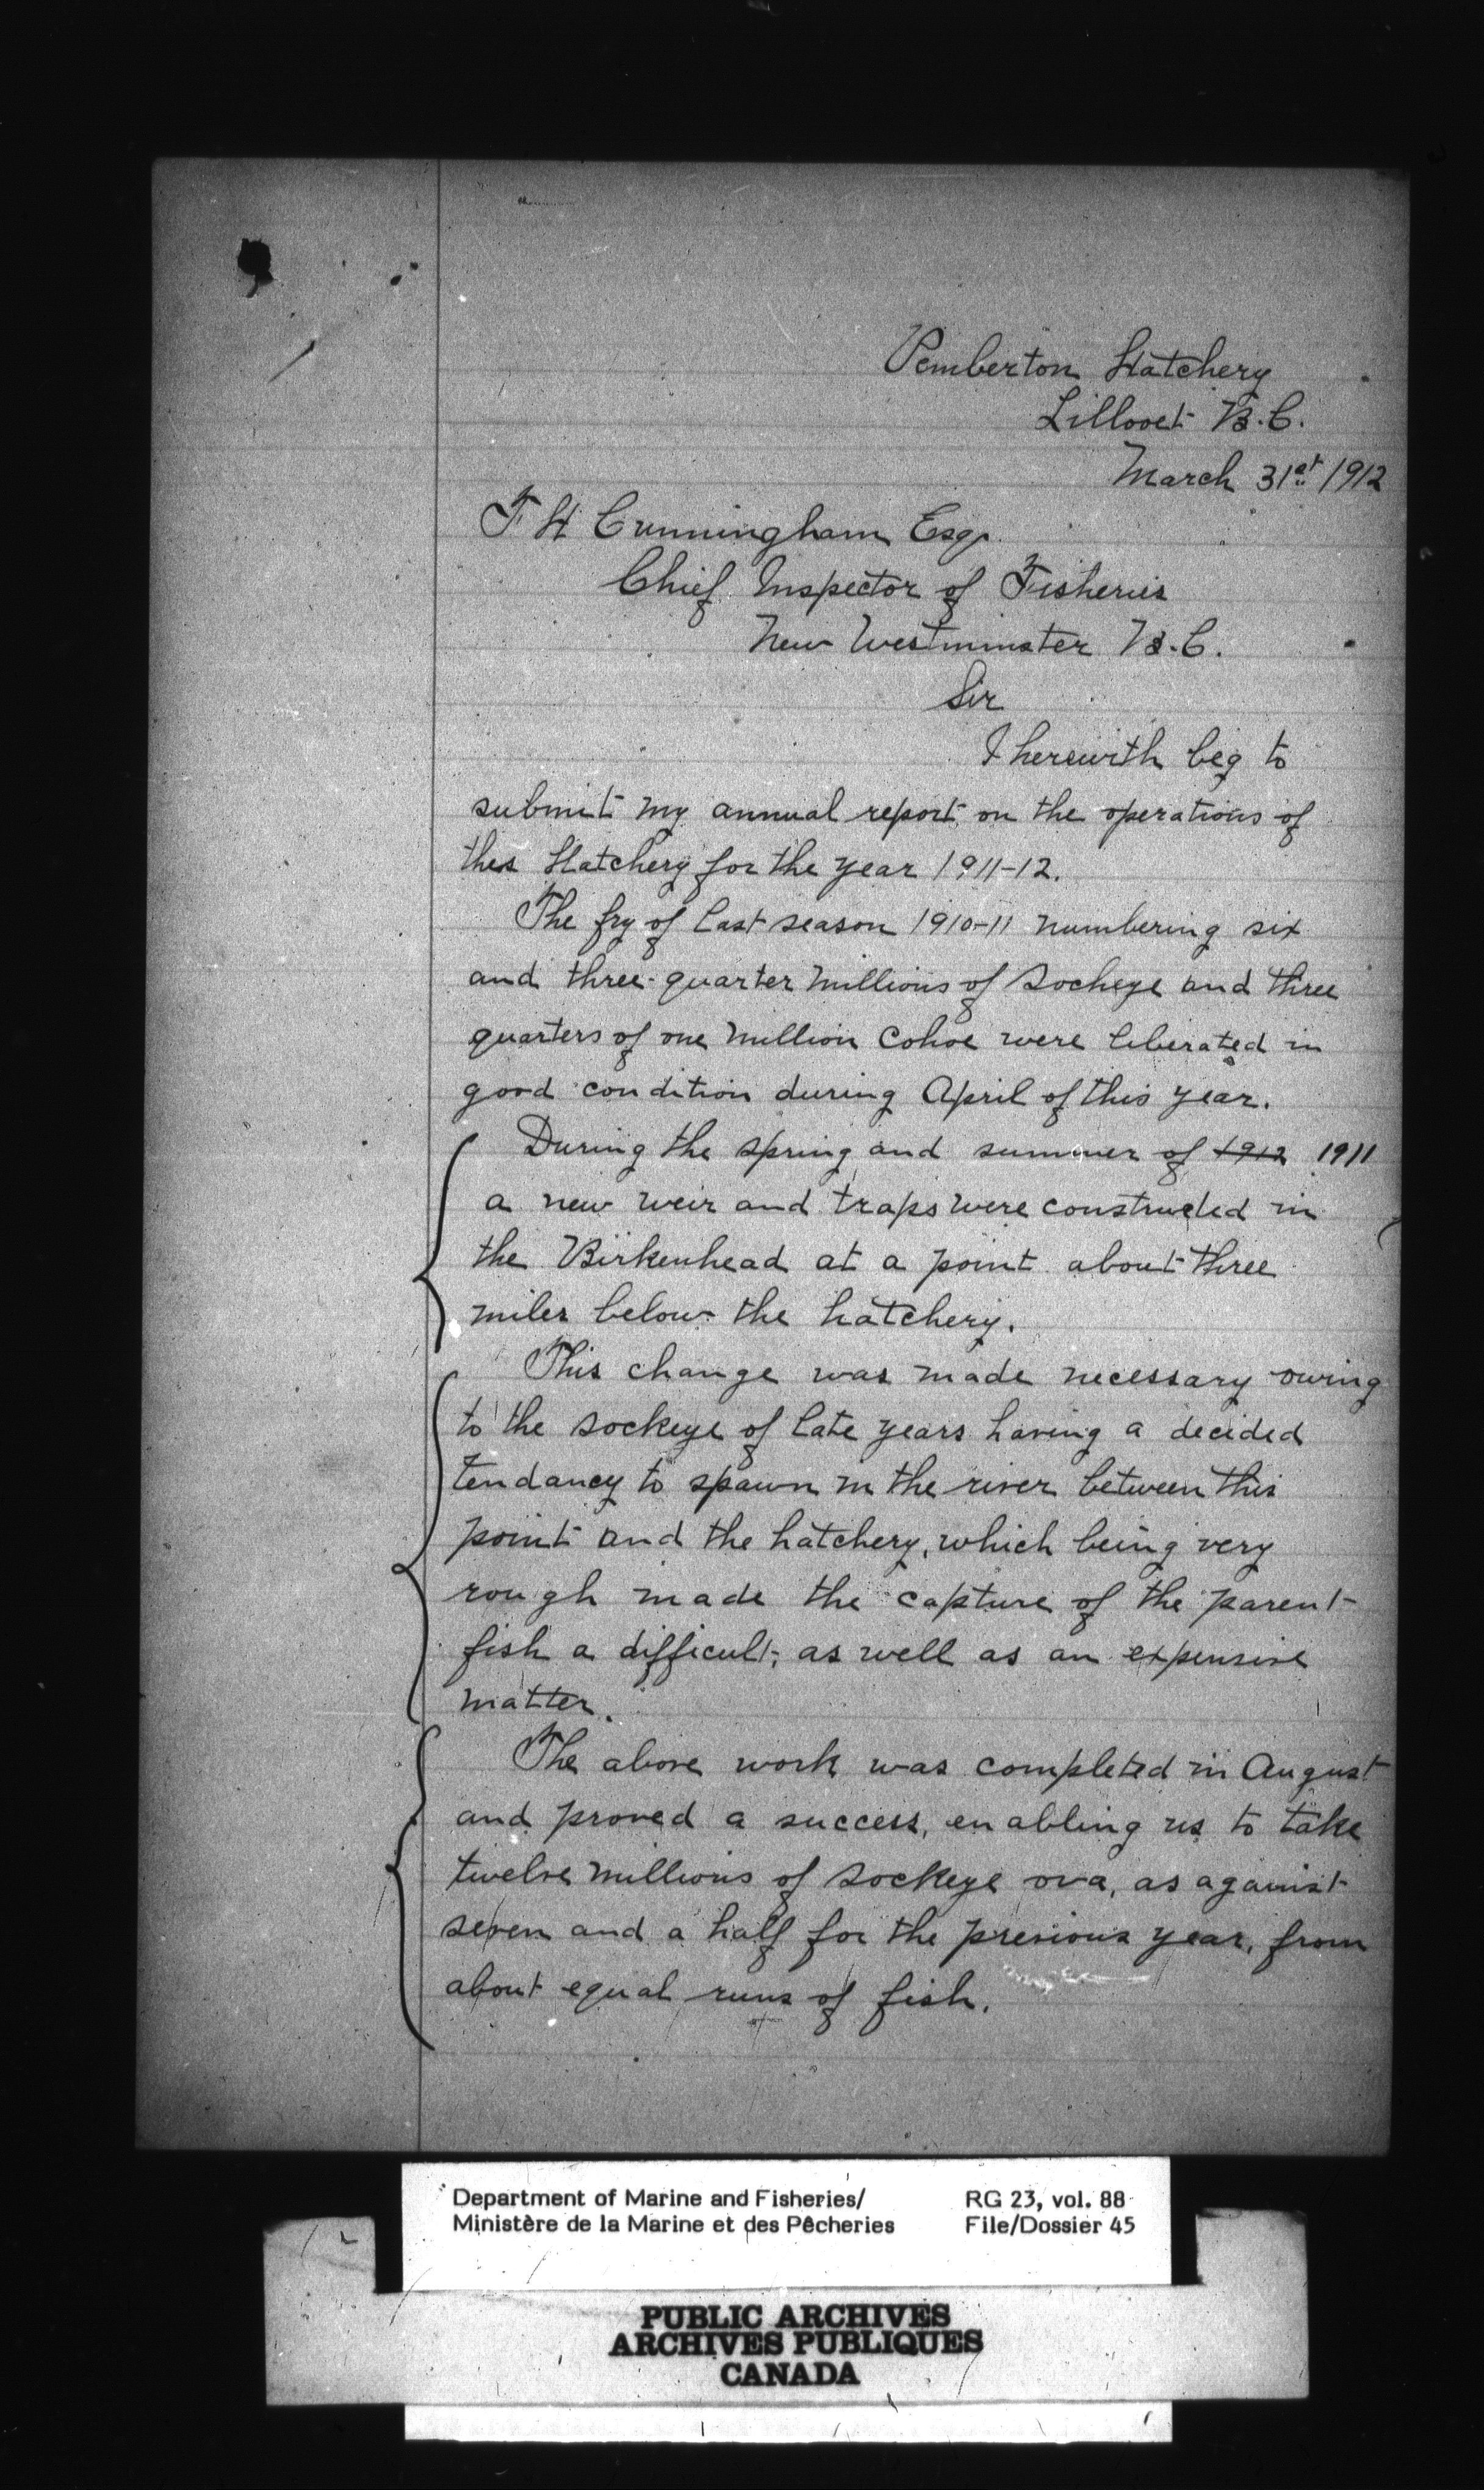 Pemberton Hatchery
Lillooet B.C.
March 31st 1912
F H Cunningham Esq.
Chief Inspector of Fisheries
New Westminster B.C.
Sir
I herewith beg to
submit my annual report on the operations of
this Hatchery for the year 1911-12.
The fry of last season 1910-11 numbering six
and three-quarter millions of Sockeye and three
quarters of one million Cohoe were liberated in
good condition during April of this year.
During the spring and summer of 1912 1911
a new weir and traps were constructed in
the Birkenhead at a point about three
miles below the hatchery.
This change was made necessary owing
to the sockeye of late years having a decided
tendancy to spawn in the river between this
point and the hatchery, which being very
rough made the capture of the parent
fish a difficult, as well as an expensive
matter.
The above work was completed in August
and proved a success, enabling us to take
twelve millions of Sockeye ova, as against
seven and a half for the previous year, from
about equal runs of fish.
Department of Marine and Fisheries/ RG 23, vol. 88
Ministère de la Marine et des Pêcheries File/Dossier 45
PUBLIC ARCHIVES
ARCHIVES PUBLIQUES
CANADA